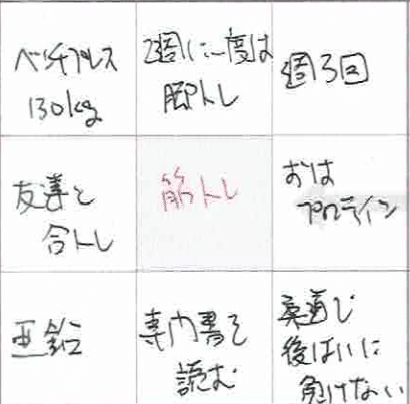 ベンチプレス
130kg
2週に一度は
脚トレ
週3回
友達と
合トレ
筋トレ
おは
プロテイン
亜鉛
専門書を
読む
後はいに
負けない